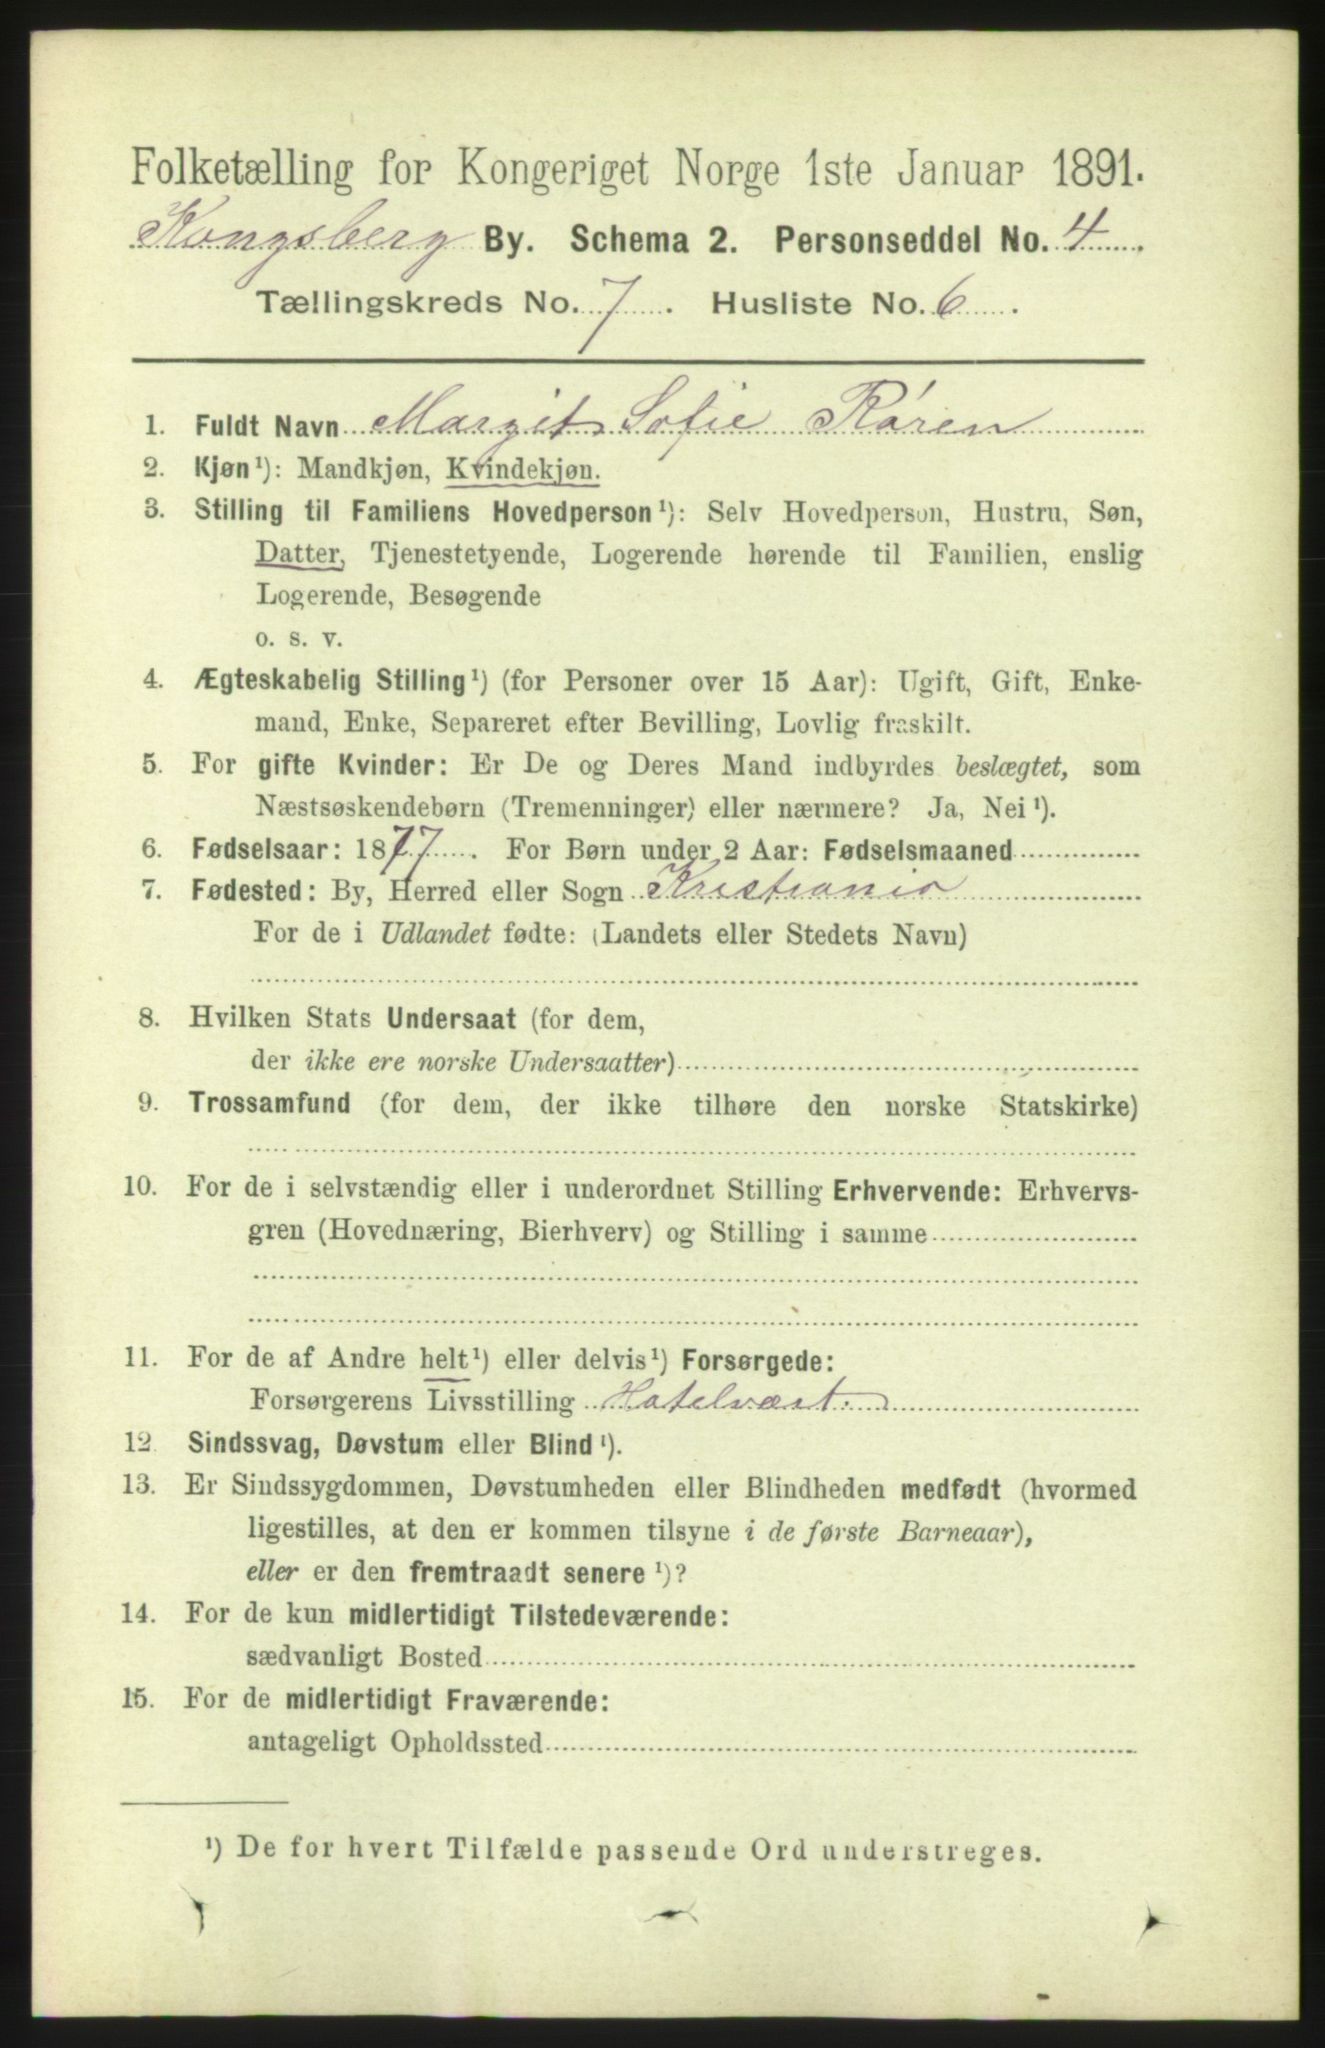 Folketælling for Kongeriget Norge 1ste Januar 1891.
Kongsberg By. Schema 2. Personseddel No. 4
Tællingskreds No. 7. Husliste No. 6.
1. Fuldt Navn Margit Sofie Róren
2. Kjøn ¹): Mandkjøn, Kvindekjøn.
3. Stilling til Familiens Hovedperson ¹): Selv Hovedperson, Hustru, Søn,
Datter, Tjenestetyende, Logerende hørende til Familien, enslig
Logerende, Besøgende
o. s. v.
4. Ægteskabelig Stilling ¹) (for Personer over 15 Aar): Ugift, Gift, Enke-
mand, Enke, Separeret efter Bevilling, Lovlig fraskilt.
5. For gifte Kvinder: Er De og Deres Mand indbyrdes beslægtet, som
Næstsøskendebørn (Tremenninger) eller nærmere? Ja, Nei ¹).
6. Fødselsaar: 1877. For Børn under 2 Aar: Fødselsmaaned
7. Fødested: By, Herred eller Sogn Kristiania
For de i Udlandet fødte: (Landets eller Stedets Navn)
8. Hvilken Stats Undersaat (for dem,
der ikke ere norske Undersaatter)
9. Trossamfund (for dem, der ikke tilhøre den norske Statskirke)
10. For de i selvstændig eller i underordnet Stilling Erhvervende: Erhvervs-
gren (Hovednæring, Bierhverv) og Stilling i samme
11. For de af Andre helt ¹) eller delvis ¹) Forsørgede:
Forsørgerens Livsstilling Hotelvært.
12. Sindssvag, Døvstum eller Blind ¹).
13. Er Sindssygdommen, Døvstumheden eller Blindheden medfødt (hvormed
ligestilles, at den er kommen tilsyne i de første Barneaar),
eller er den fremtraadt senere ¹)?
14. For de kun midlertidigt Tilstedeværende:
sædvanligt Bosted
15. For de midlertidigt Fraværende:
antageligt Opholdssted
¹) De for hvert Tilfælde passende Ord understreges.